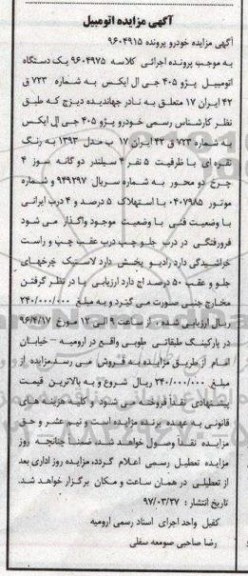 آگهی مزایده اتومبیل
آگهی مزایده خودرو پرونده ۹۶۰۴۹۱۵
به موجب پرونده اجرائی کلاسه ۹۶۰۴۹۷۵ یک دستگاه
اتومبیل پژو ۴۰۵ جی ال ایکس به شماره ۷۲۳ ق
۴۲ ایران ۱۷ متعلق به نادر جهاندیده دیزج که طبق
نظر کارشناس رسمی خودرو پژو ۴۰۵ جی ال ایکس
به شماره ۷۲۳ ق ۴۲ ایران ۱۷ ب مدل ۱۳۹۳ به رنگ
نقره ای با ظرفیت ۵ نفر ۴ سیلندر دوگانه سوز ۴
چرخ دو محور به شماره سریال ۹۴۹۲۹۷ و شماره
موتور ۰۴۰۷۹۸۵ با استهلاک ۵ درصد و ۴ درب ایرانی
با وضعیت فنی با وضعیت موجود واگذار می شود
فرورفتگی در درب جلو چپ درب عقب چپ و راست
خراشیدگی دارد رادیو پخش دارد لاستیک چرخهای
جلو و عقب ۵۰ درصد آج دارد ارزیابی با در نظر گرفتن
مخارج جنبی صورت می گیرد و به مبلغ ۲۴۰/۰۰۰/۰۰۰
ریال ارزیابی شده از ساعت ۹ الی ۱۲ مورخ ۹۷/۴/۱۷
در پارکینگ طبقاتی طوبی واقع در ارومیه - خیابان
امام از طریق مزایده به فروش می رسد مزایده از
مبلغ ۲۴۰/۰۰۰/۰۰۰ ریال شروع و به بالاترین قیمت
پیشنهادی نقداً فروخته می شود و کلیه هزینه های
قانونی به عهده برنده مزایده است و نیم عشر و حق
مزایده نقداً وصول خواهد شد ضمناً چنانچه روز
مزایده تعطیل رسمی اعلام گردد مزایده روز اداری بعد
از تعطیلی در همان ساعت و مکان برگزار خواهد شد.
تاریخ انتشار : ۹۷/۰۳/۲۷
کفیل واحد اجرای اسناد رسمی ارومیه
رضا صاحبی صومعه سفلی